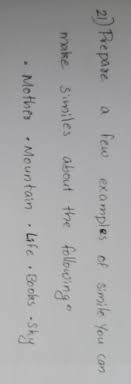 21) Prepare a few examples of simile you can
make similes about the following"
• Mother • Mountain • Life • Books • Sky